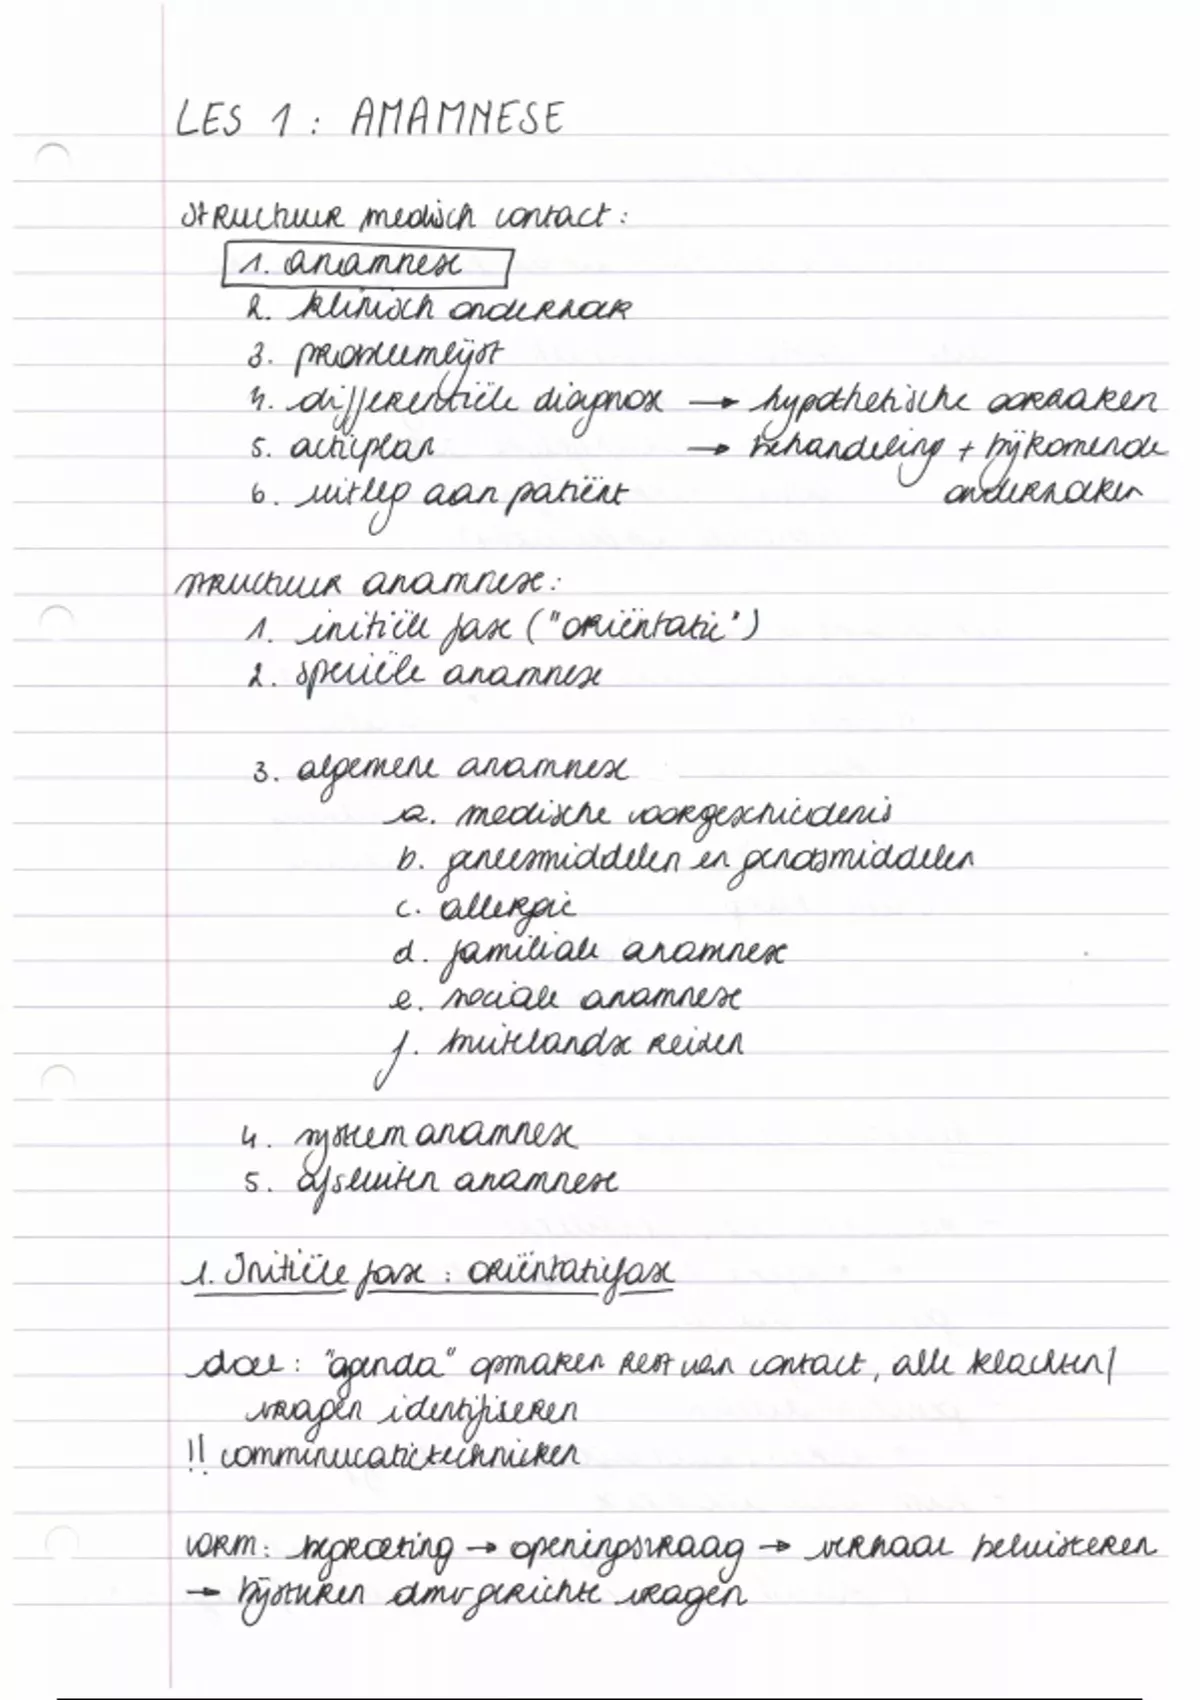 LES 1 : ANAMNESE
structuur medisch contact :
1. anamnese
2. klinisch onderzoek
3. probleemlijst
4. differentiële diagnose → hypothetische oorzaken
5. actieplan → behandeling + bijkomende
6. uitleg aan patiënt onderzoeken
structuur anamnese :
1. initiële fase ("oriëntatie")
2. speciële anamnese
3. algemene anamnese
a. medische voorgeschiedenis
b. geneesmiddelen en genotsmiddelen
c. allergie
d. familiale anamnese
e. sociale anamnese
f. buitlandse reizen
4. systeem anamnese
5. afsluiten anamnese
1. Initiële fase : oriëntatiefase
doel : "agenda" opmaken rest van contact, alle klachten/
vragen identifiseren
!! comminucatietechnieken
vorm : begroeting → openingsvraag → verhaal beluisteren
→ bijsturen dmv gerichte vragen